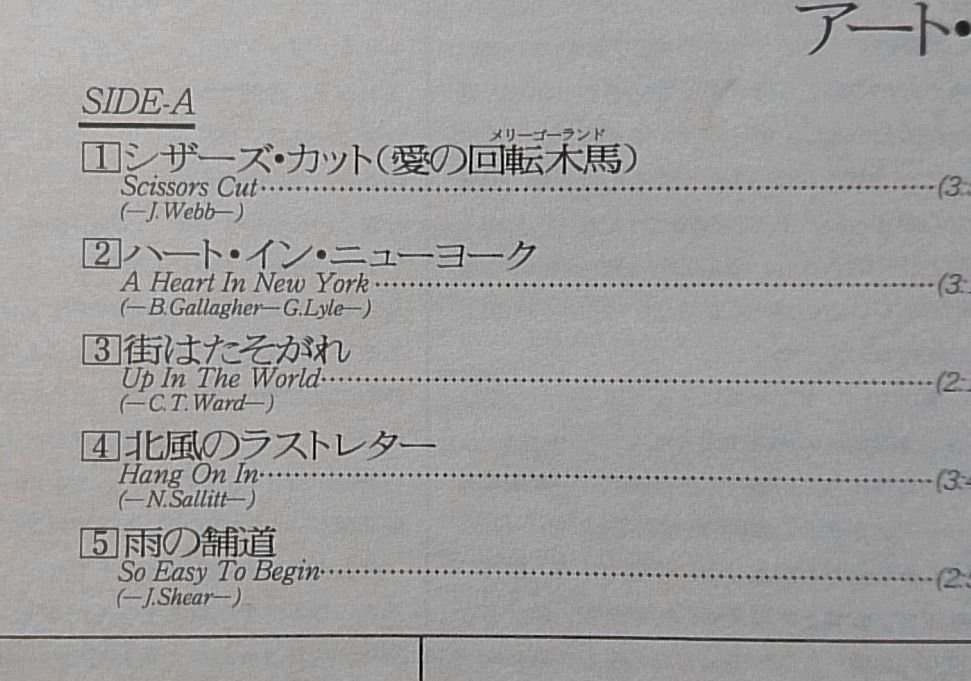 アート•
SIDE-A
メリーゴーランド
1 シザーズ•カット(愛の回転木馬)
Scissors Cut (3:
(—J.Webb—)
2 ハート•イン•ニューヨーク
A Heart In New York (3:
(—B.Gallagher—G.Lyle—)
3 街はたそがれ
Up In The World (2:
(—C.T.Ward—)
4 北風のラストレター
Hang On In (3:
(—N.Sallitt—)
5 雨の舗道
So Easy To Begin (2:
(—J.Shear—)